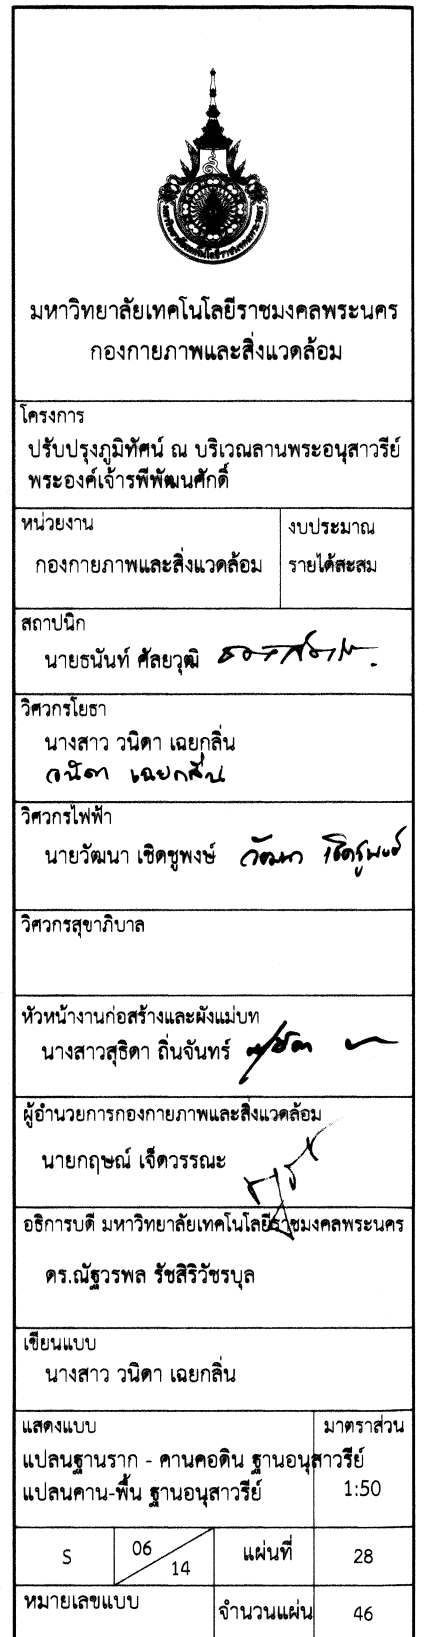 มหาวิทยาลัยเทคโนโลยีราชมงคลพระนคร
กองกายภาพและสิ่งแวดล้อม
โครงการ
ปรับปรุงภูมิทัศน์ ณ บริเวณลานพระอนุสาวรีย์
พระองค์เจ้ารพีพัฒนศักดิ์
หน่วยงาน
กองกายภาพและสิ่งแวดล้อม
งบประมาณ
รายได้สะสม
สถาปนิก
นายธนันท์ ศัลยวุฒิ
วิศวกรโยธา
นางสาว วนิดา เฉยกลิ่น
วนิดา เฉยกลิ่น
วิศวกรไฟฟ้า
นายวัฒนา เชิดชูพงษ์ วัฒนา เชิดชูพงษ์
วิศวกรสุขาภิบาล
หัวหน้างานก่อสร้างและผังแม่บท
นางสาวสุธิดา ถิ่นจันทร์
ผู้อำนวยการกองกายภาพและสิ่งแวดล้อม
นายกฤษณ์ เจ็ดวรรณะ
อธิการบดี มหาวิทยาลัยเทคโนโลยีราชมงคลพระนคร
ดร.ณัฐวรพล รัชสิริวัชรบุล
เขียนแบบ
นางสาว วนิดา เฉยกลิ่น
แสดงแบบ
แปลนฐานราก - คานคอดิน ฐานอนุสาวรีย์
แปลนคาน-พื้น ฐานอนุสาวรีย์
มาตราส่วน
1:50
S
06
14
แผ่นที่
28
หมายเลขแบบ
จำนวนแผ่น
46